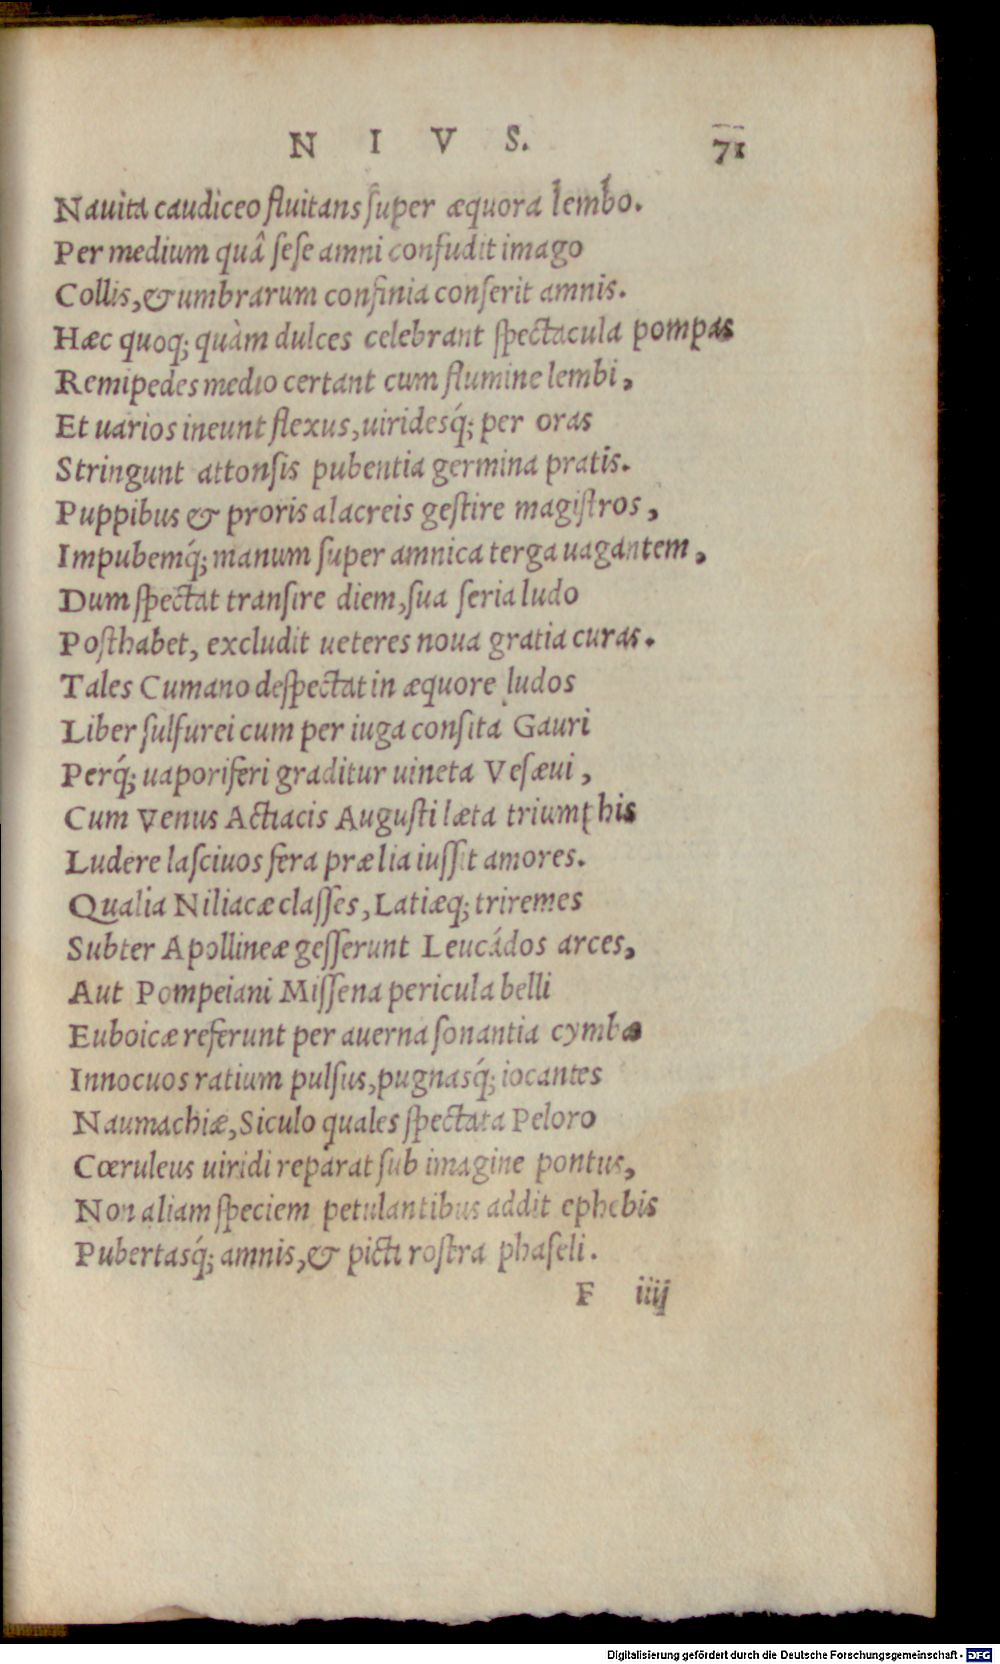 N I V S. 71
Nauita caudiceo fluitans super æquora lembo.
Per medium quâ sese amni confudit imago
Collis, & umbrarum confinia conserit amnis.
Hæc quoq; quàm dulces celebrant spectacula pompas
Remipedes medio certant cum flumine lembi,
Et uarios ineunt flexus, uiridesq́; per oras
Stringunt attonsis pubentia germina pratis.
Puppibus & proris alacreis gestire magistros,
Impubemq́; manum super amnica terga uagantem,
Dum spectat transire diem, sua seria ludo
Posthabet, excludit ueteres noua gratia curas.
Tales Cumano despectat in æquore ludos
Liber sulfurei cum per iuga consita Gauri
Perq́; uaporiferi graditur uineta Vesæui,
Cum Venus Actiacis Augusti læta triumphis
Ludere lasciuos fera prælia iussit amores.
Qualia Niliacæ classes, Latiæq; triremes
Subter Apollineæ gesserunt Leucádos arces,
Aut Pompeiani Missena pericula belli
Euboicæ referunt per auerna sonantia cymbæ
Innocuos ratium pulsus, pugnasq́; iocantes
Naumachiæ, Siculo quales spectata Peloro
Cœruleus uiridi reparat sub imagine pontus,
Non aliam speciem petulantibus addit ephebis
Pubertasq́; amnis, & picti rostra phaseli.
F iiij
Digitalisierung gefördert durch die Deutsche Forschungsgemeinschaft - DFG